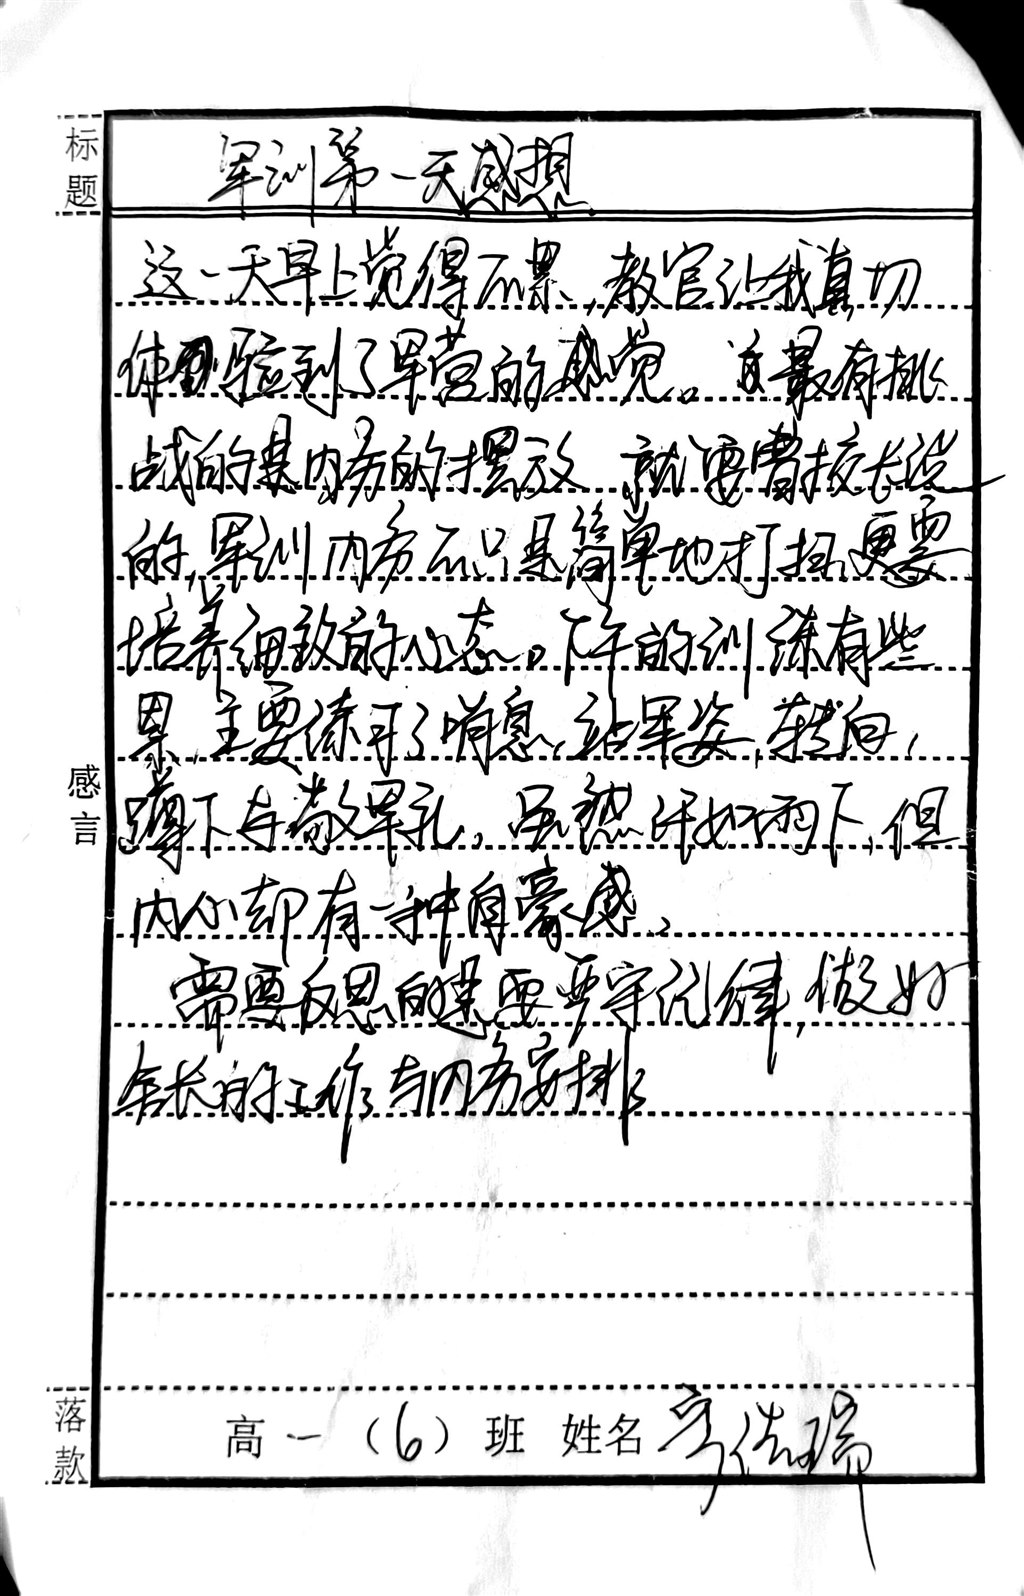 标题
军训第一天感想
这一天早上觉得不累，教官让我真切
体验到了军营的感觉。最有挑
战的是内务的摆放 就要曹校长说
的，军训内务不只是简单地打扫，更要
培养细致的心态。下午的训练有些
累，主要练习了哨息，站军姿，转向，
蹲下与敬军礼。虽然汗如雨下，但
内心却有一种自豪感。
需要反思的是要严守纪律，做好
舍长的工作与内务安排
感言
落款
高一（6）班 姓名 佳瑞